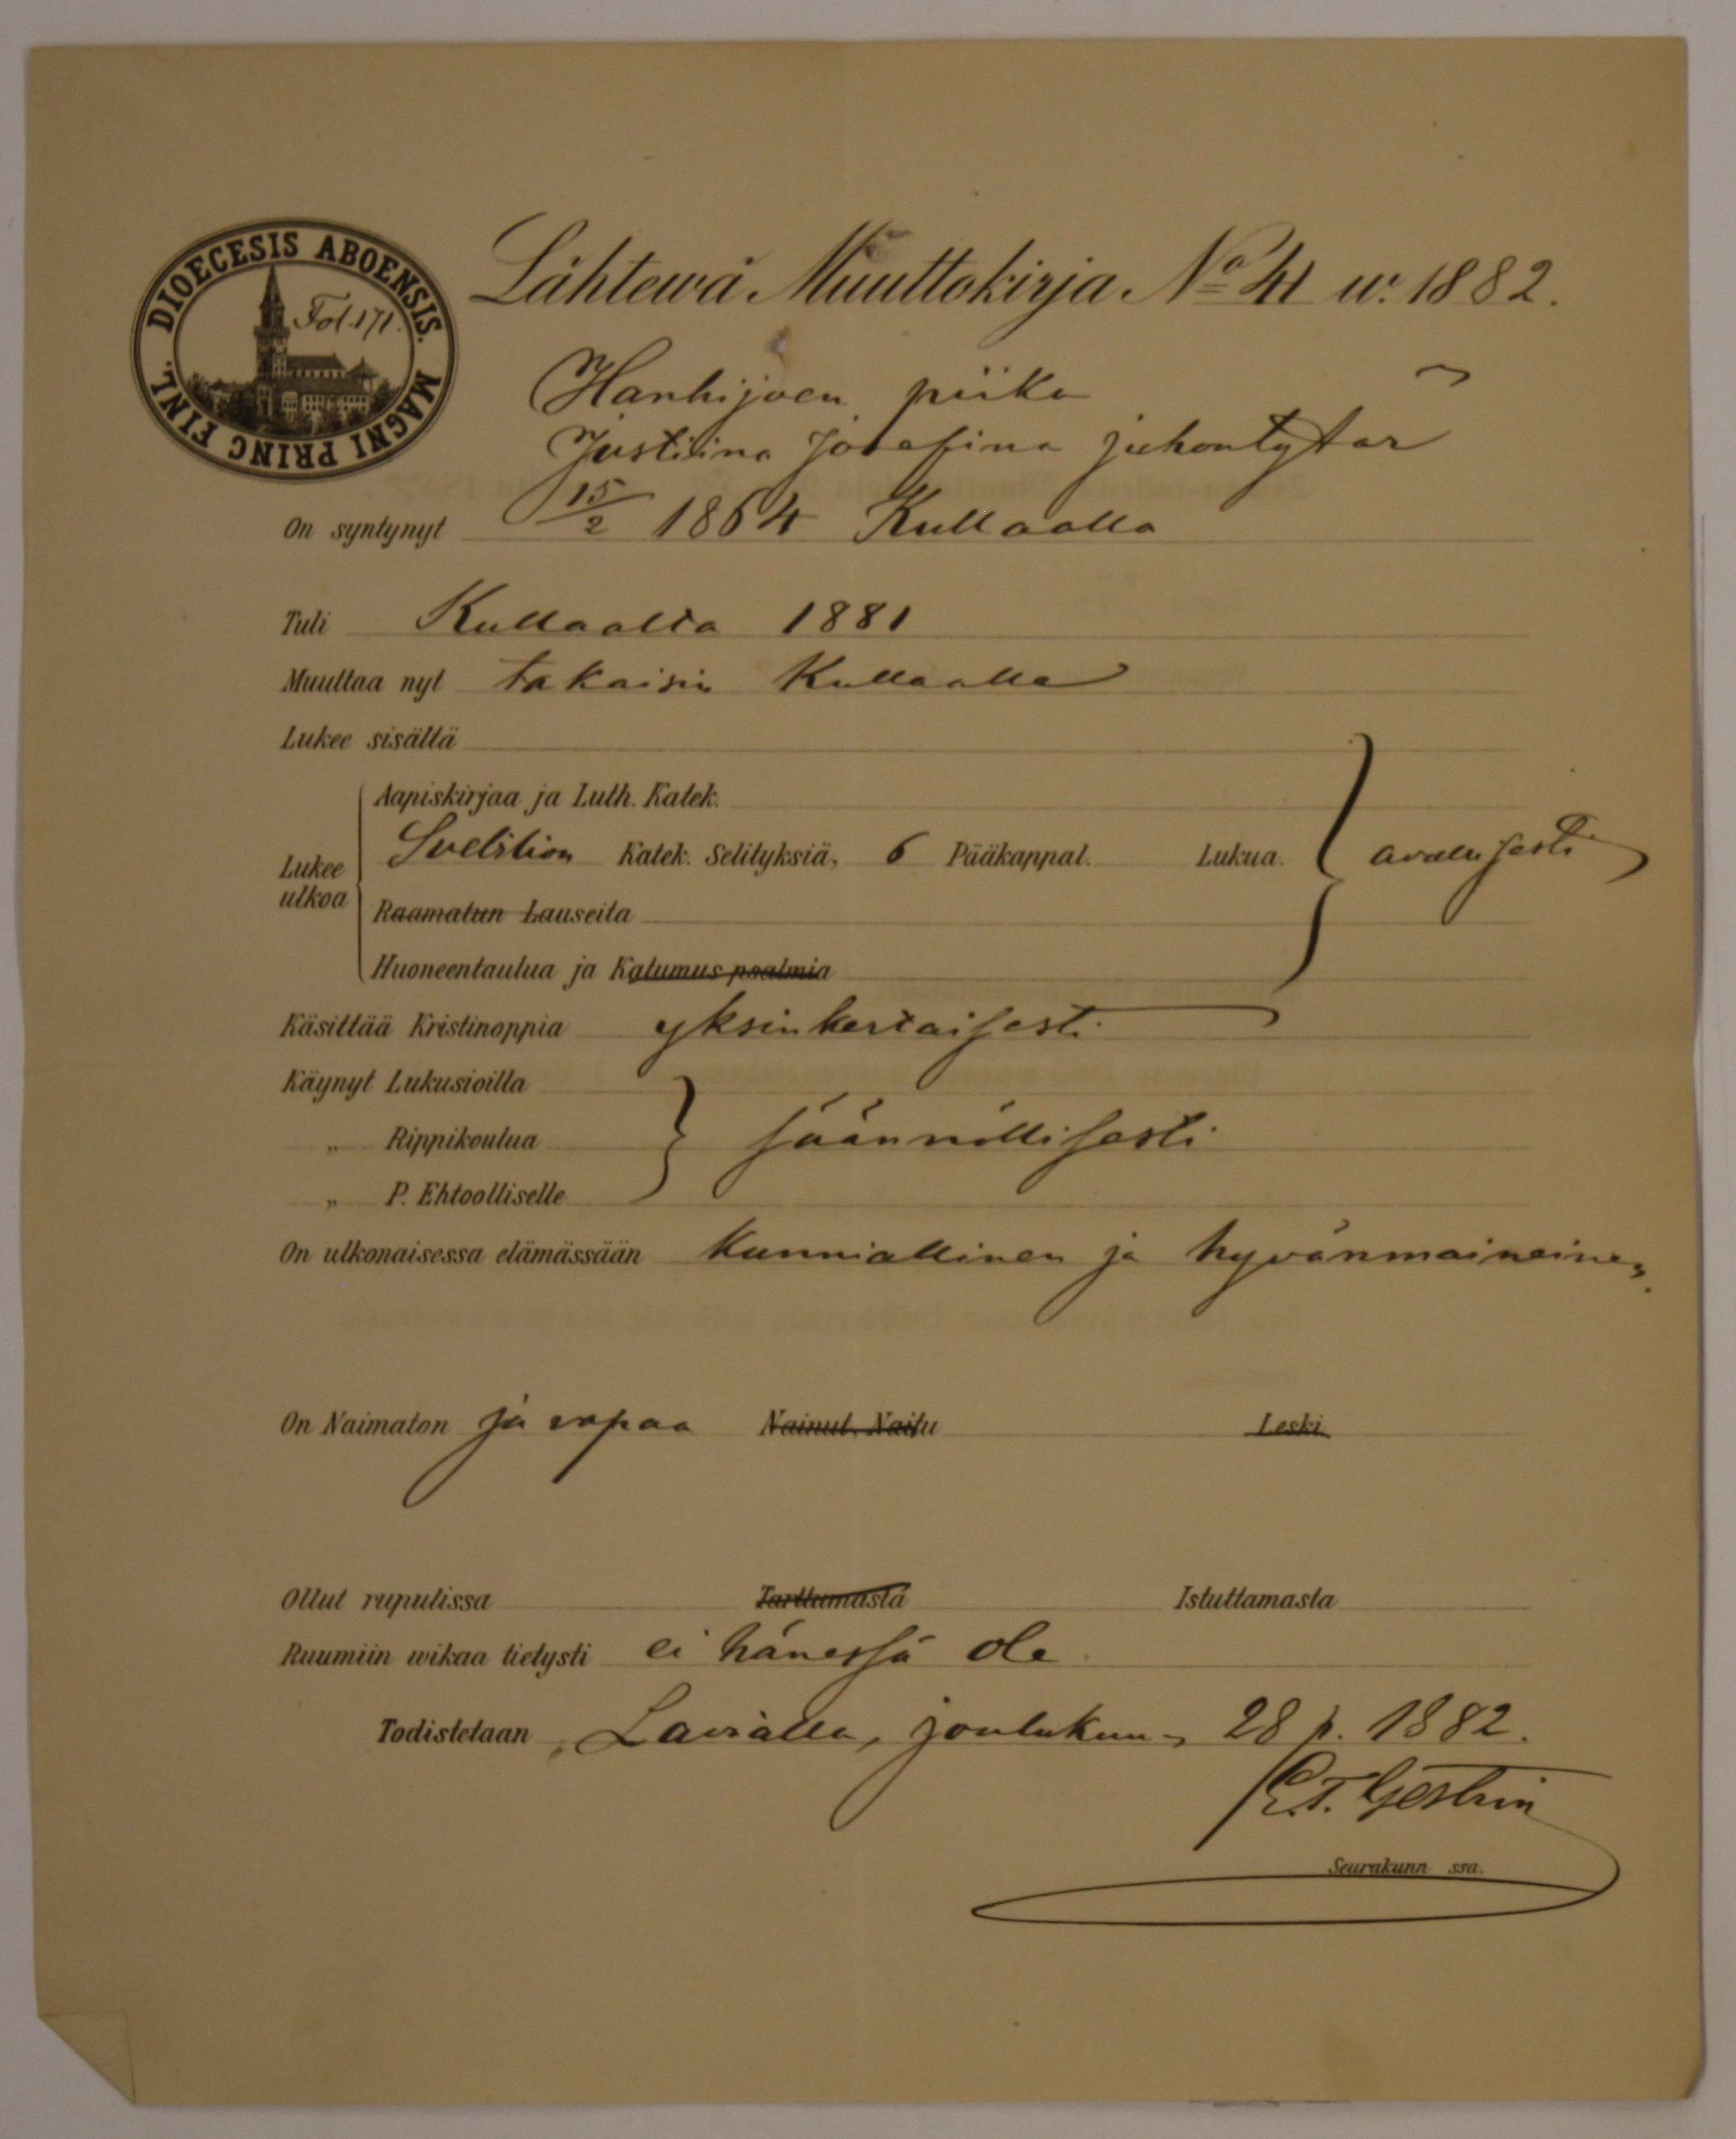 DIOECESIS ABOENSIS. MAGNI PRINC FINL.
Fol. 171.
Lähtewä Muuttokirja No 41 w. 1882.
Hanhijoen piika
Justiina Josefina Juhontytär
On syntynyt 15/2 1864 Kullaalla
Tuli Kullaalta 1881
Muuttaa nyt takaisin Kullaalle
Lukee sisältä
Aapiskirjaa ja Luth. Katek.
Lukee ulkoa Svebilion Katek. Selityksiä, 6 Pääkappal. Lukua.
Raamatun Lauseita
Huoneentaulua ja Katumus psalmia
Käsittää Kristinoppia yksinkertaisesti
Käynyt Lukusioilla
„ Rippikoulua säännöllisesti
„ P. Ehtoolliselle
On ulkonaisessa elämässään kunniallinen ja hyvänmaineinen.
On Naimaton ja vapaa Nainut, Naitu Leski
Ollut rupulissa Tarttumasta Istuttamasta
Ruumiin wikaa tietysti ei hänessä ole
Todistetaan, Lavialla, joulukuun 28 p. 1882.
Gestrin
Seurakunn ssa.